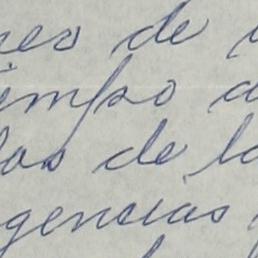 res de
iempo
los de la
gencias